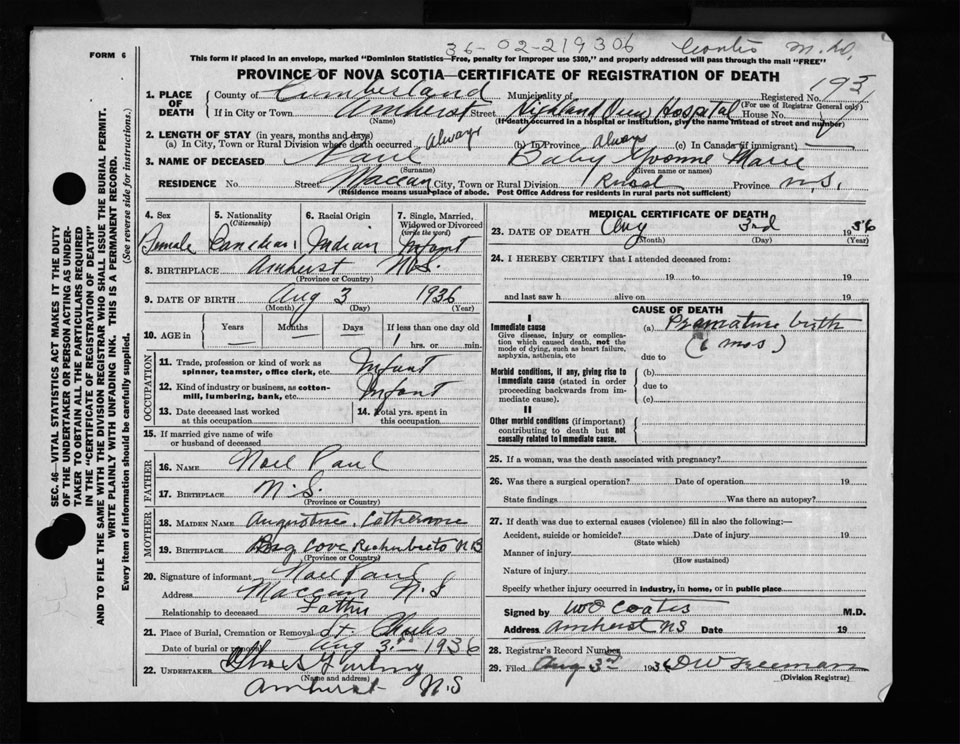 36-02-219306 Coates M.D.
FORM 6
This form if placed in an envelope, marked "Dominion Statistics—Free, penalty for improper use $300," and properly addressed will pass through the mail "FREE"
PROVINCE OF NOVA SCOTIA—CERTIFICATE OF REGISTRATION OF DEATH
SEC. 46—VITAL STATISTICS ACT MAKES IT THE DUTY
OF THE UNDERTAKER OR PERSON ACTING AS UNDER-
TAKER TO OBTAIN ALL THE PARTICULARS REQUIRED
IN THE "CERTIFICATE OF REGISTRATION OF DEATH"
AND TO FILE THE SAME WITH THE DIVISION REGISTRAR WHO SHALL ISSUE THE BURIAL PERMIT.
WRITE PLAINLY WITH UNFADING INK. THIS IS A PERMANENT RECORD.
Every item of information should be carefully supplied. (See reverse side for instructions.)
1. PLACE OF DEATH County of Cumberland Municipality of Registered No. 193
(For use of Registrar General only)
If in City or Town Amherst Street Highland View Hospital House No.
(Name) (If death occurred in a hospital or institution, give the name instead of street and number)
2. LENGTH OF STAY (in years, months and days)
(a) In City, Town or Rural Division where death occurred Always (b) In Province Always (c) In Canada (if immigrant)
3. NAME OF DECEASED Paul Baby Yvonne Marie
(Surname) (Given name or names)
RESIDENCE No. Street Maccan City, Town or Rural Division Rural Province N.S.
(Residence means usual place of abode. Post Office Address for residents in rural parts not sufficient)
4. Sex Female
5. Nationality (Citizenship) Canadian
6. Racial Origin Indian
7. Single, Married, Widowed or Divorced (write the word) Infant
8. BIRTHPLACE Amherst N.S.
(Province or Country)
9. DATE OF BIRTH Aug 3 1936
(Month) (Day) (Year)
10. AGE in Years Months Days If less than one day old
hrs. or min.
OCCUPATION
11. Trade, profession or kind of work as
spinner, teamster, office clerk, etc. Infant
12. Kind of industry or business, as cotton-
mill, lumbering, bank, etc. Infant
13. Date deceased last worked
at this occupation
14. Total yrs. spent in
this occupation
15. If married give name of wife
or husband of deceased
FATHER
16. NAME Noel Paul
17. BIRTHPLACE N.S.
(Province or Country)
MOTHER
18. MAIDEN NAME Augustine, Catherine
19. BIRTHPLACE Big Cove N B
(Province or Country)
20. Signature of informant Noel Paul
Address Maccan N.S
Relationship to deceased Father
21. Place of Burial, Cremation or Removal St. Charles
Date of burial or removal Aug 3rd 1936
22. UNDERTAKER
(Name and address)
Amherst N.S
MEDICAL CERTIFICATE OF DEATH
23. DATE OF DEATH Aug 3rd 1936
(Month) (Day) (Year)
24. I HEREBY CERTIFY that I attended deceased from:
19 to 19
and last saw h alive on 19
CAUSE OF DEATH
I
Immediate cause
Give disease, injury or complica-
tion which caused death, not the
mode of dying, such as heart failure,
asphyxia, asthenia, etc
(a) Premature birth
(6 mos)
due to
Morbid conditions, if any, giving rise to
immediate cause (stated in order
proceeding backwards from im-
mediate cause).
(b)
due to
(c)
II
Other morbid conditions (if important)
contributing to death but not
causally related to immediate cause.
25. If a woman, was the death associated with pregnancy?
26. Was there a surgical operation? Date of operation 19
State findings Was there an autopsy?
27. If death was due to external causes (violence) fill in also the following:—
Accident, suicide or homicide? Date of injury 19
(State which)
Manner of injury
(How sustained)
Nature of injury
Specify whether injury occurred in industry, in home, or in public place
Signed by W E Coates M.D.
Address Amherst NS Date 19
28. Registrar's Record Number
29. Filed Aug 3rd 1936 D W Freeman
(Division Registrar)